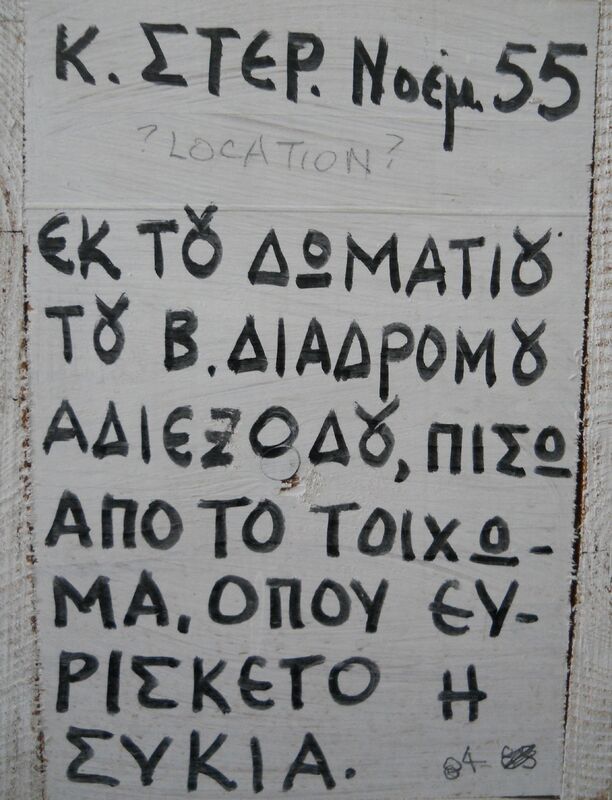 Κ. ΣΤΕΡ. Νοέμ. 55
?LOCATION?
ΕΚ ΤȢ ΔΩΜΑΤΙȢ
ΤȢ Β. ΔΙΑΔΡΟΜȢ
ΑΔΙΕΞΟΔȢ, ΠΙΣΩ
ΑΠΟ ΤΟ ΤΟΙΧΩ-
ΜΑ, ΟΠΟΥ ΕΥ-
ΡΙΣΚΕΤΟ Η
ΣΥΚΙΑ.
04